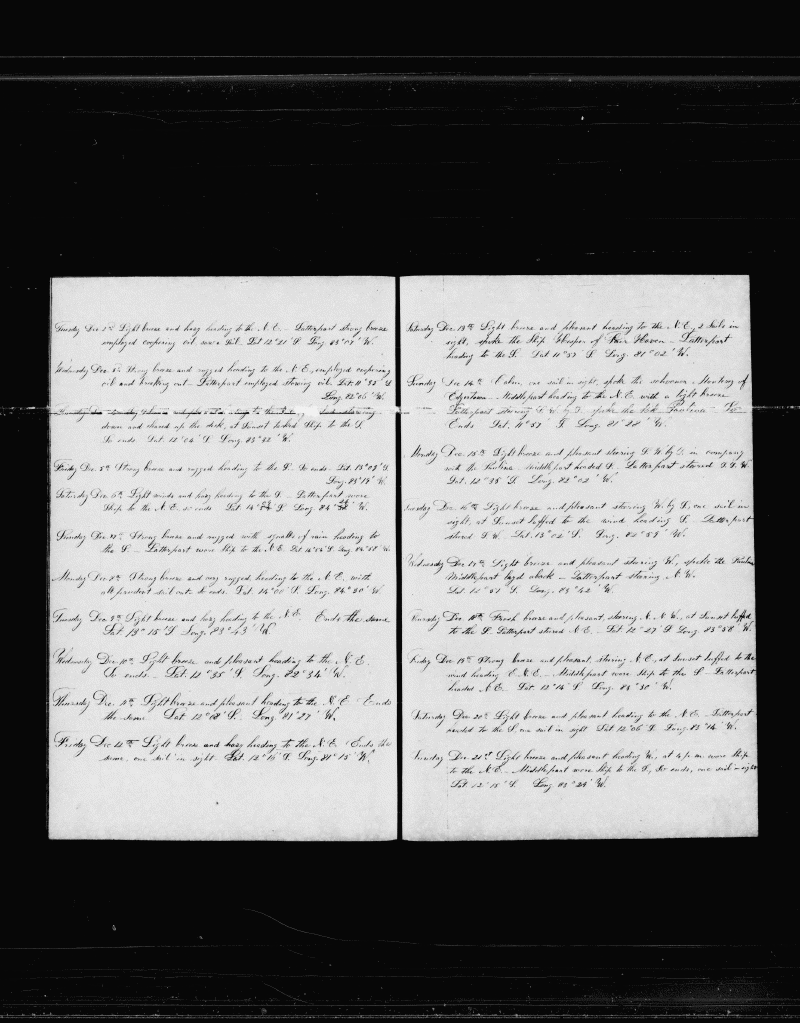 Tuesday Dec 2nd Light breeze and hazy heading to the N.E. – Latterpart strong breeze
employed coopering oil saw a Sail. Lat 12° 21' S Long 83° 07' W.
Wednesday Dec 3rd Strong breeze and rugged heading to the N.E, employed coopering
oil and breaking out – Latterpart employed stowing oil. Lat. 11° 32' S
Long. 82° 06' W.
down and cleared up the deck, at Sunset tacked Ship to the S.
So ends. Lat. 12° 04' S. Long. 83° 32' W.
Friday Dec. 5th Strong breeze and rugged heading to the S. So ends. Lat. 13° 08' S.
Long. 83° 19' W.
Saturday Dec. 6th Light winds and hazy heading to the S. – Latterpart wore
Ship to the N.E. so ends Lat. 14° S. Long. 84° W.
Sunday Dec. 7th Strong breeze and rugged with squalls of rain heading to
the S. – Latterpart wore Ship to the N.E. Lat 14° S. Long. 84° W.
Monday Dec. 8th Strong breeze and very rugged heading to the N.E. with
all prudent sail out. So ends. Lat. 14° 00' S. Long. 84° 30' W.
Tuesday Dec. 9th Light breeze and hazy heading to the N.E. Ends the same
Lat 13° 15' S Long. 83° 43' W
Wednesday Dec 10th Light breeze and pleasant heading to the N.E.
So ends – Lat. 12° 35' S. Long. 82° 34' W.
Thursday Dec. 11th Light breeze and pleasant heading to the N.E. Ends
the same Lat 12° 08' S. Long. 81° 27' W.
Friday Dec 12th Light breeze and hazy heading to the N.E. Ends the
same, one sail in sight. Lat. 12° 16' S. Long. 81° 15' W.
Saturday Dec. 13th Light breeze and pleasant heading to the N.E, 2 Sails in
sight, spoke the Ship of Fair Haven – Latterpart
heading to the S. Lat 11° 53' S Long. 81° 02' W.
Sunday Dec 14th Calm, one sail in sight, spoke the schooner of
Edgartown – Middlepart heading to the N.E. with a light breeze
Latterpart steering S.W. by S. spoke the Bark Paulina So
Ends Lat. 11° 57' S. Long. 81° 28' W.
Monday Dec. 15th Light breeze and pleasant steering S.W. by S. in company
with the Paulina – Middlepart headed S. – Latterpart steered S.S.W.
Lat. 12° 35' S Long. 82° 02' W.
Tuesday Dec. 16th Light breeze and pleasant steering W. by S, one sail in
sight, at Sunset luffed to the wind heading S. – Latterpart
steered S.W. Lat. 13° 02' S. Long. 82° 59' W.
Wednesday Dec 17th Light breeze and pleasant steering W, spoke the Paulina
Middlepart lay'd aback – Latterpart steering N.W.
Lat. 12° 51' S. Long. 83° 42' W.
Thursday Dec. 18th Fresh breeze and pleasant, steering N.N.W, at Sunset luffed
to the S. Latterpart steered N.E. – Lat 12° 27' S Long 83° 58' W.
Friday Dec 19th Strong breeze and pleasant, steering N.E, at Sunset luffed to the
wind heading E.N.E. – Middlepart wore Ship to the S – Latterpart
headed N.E. Lat. 12° 14' S Long. 84° 30' W.
Saturday Dec 20th Light breeze and pleasant heading to the N.E. – Latterpart
headed to the S, one sail in sight Lat 12° 06' S Long. 83° 14' W.
Sunday Dec. 21st Light breeze and pleasant heading W, at 4 p.m. wore Ship
to the N.E. – Middlepart wore Ship to the S, So ends, one sail in sight
Lat. 12° 18' S Long 83° 24' W.